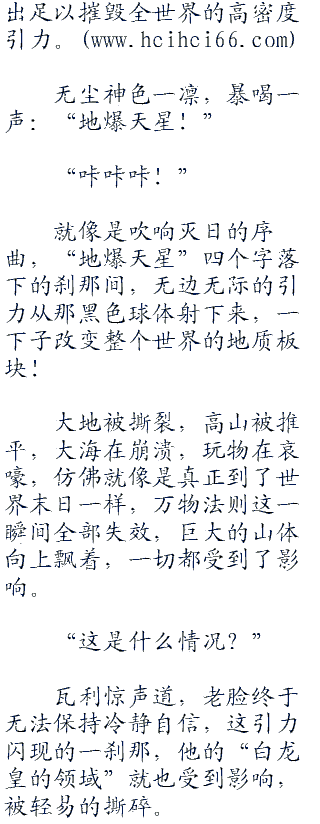 出足以摧毁全世界的高密度
引力。(www.hcihci66.com)
无尘神色一凛，暴喝一
声：“地爆天星！”
“咔咔咔！”
就像是吹响灭日的序
曲，“地爆天星”四个字落
下的刹那间，无边无际的引
力从那黑色球体射下来，一
下子改变整个世界的地质板
块！
大地被撕裂，高山被推
平，大海在崩溃，玩物在哀
嚎，仿佛就像是真正到了世
界末日一样，万物法则这一
瞬间全部失效，巨大的山体
向上飘着，一切都受到了影
响。
“这是什么情况？”
瓦利惊声道，老脸终于
无法保持冷静自信，这引力
闪现的一刹那，他的“白龙
皇的领域”就也受到影响，
被轻易的撕碎。